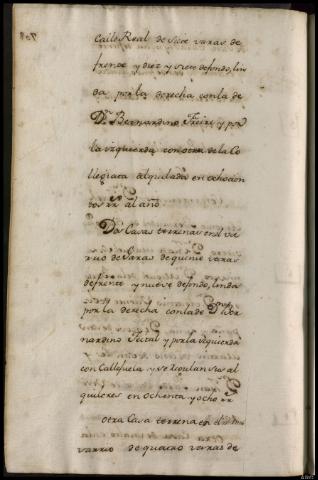 Calle Real de siete varas de
frente y diez y siete defondo, lin
da por la derecha conla de
Dn Bernardino Freire y por
la izquierda con otra de la Co
legiata alquilada en ochocien
tos rr al año
Dos Casas terrenas en el va
rrio de varas de quince varas
defrente y nueve defondo, linda
por la derecha conlade Dn Ber
nardino y por la izquierda
con Callejuela y se regulan sus al
quileres en ochenta y ocho rr
otra Casa terrena en el
varrio de quatro varas de